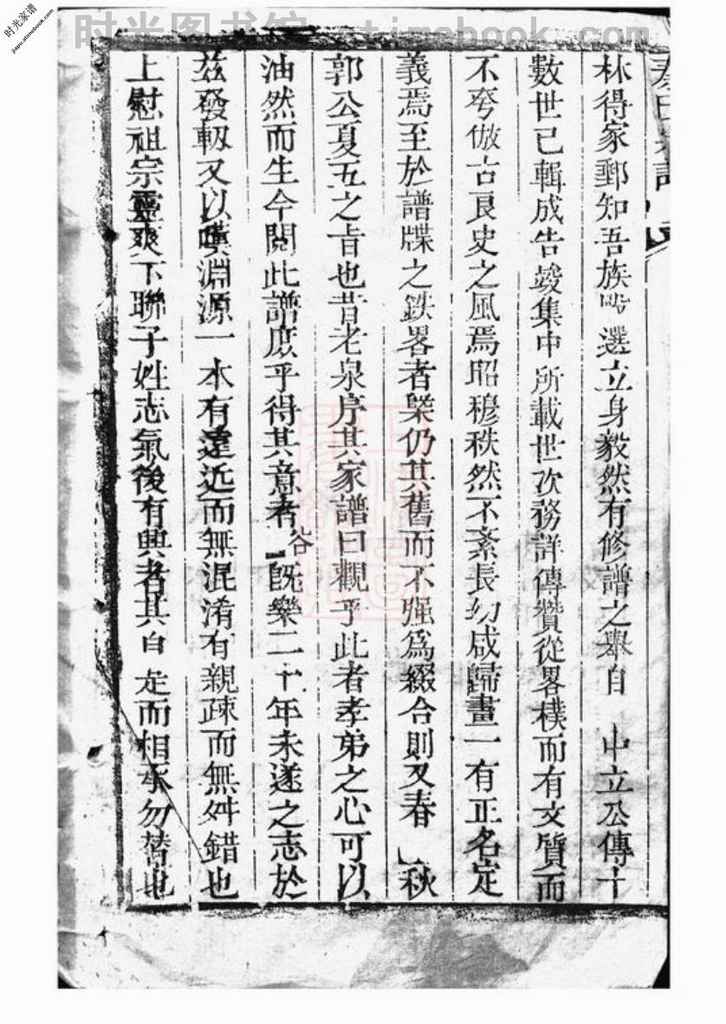 时光图书馆 - timebook.com
时光家谱
www.timebook.com
林得家郵知吾族點選立身毅然有修譜之舉自中立公傳十
數世已輯成告竣集中所載世次務詳傳贊從畧樸而有文質而
不夸倣古良史之風焉昭穆秩然不紊長幼咸歸畫一有正名定
義焉至於譜牒之鉄畧者槩仍其舊而不强為綴合則又春秋
郭公夏五之旨也昔老泉序其家譜曰觀乎此者孝弟之心可以
油然而生今閱此譜庶乎得其意者谷既樂二十年未遂之志於
茲發軔又以嘆淵源一本有遠近而無混淆有親疎而無舛錯也
上慰祖宗靈爽下聯子姓志氣後有興者其自是而相承勿替也